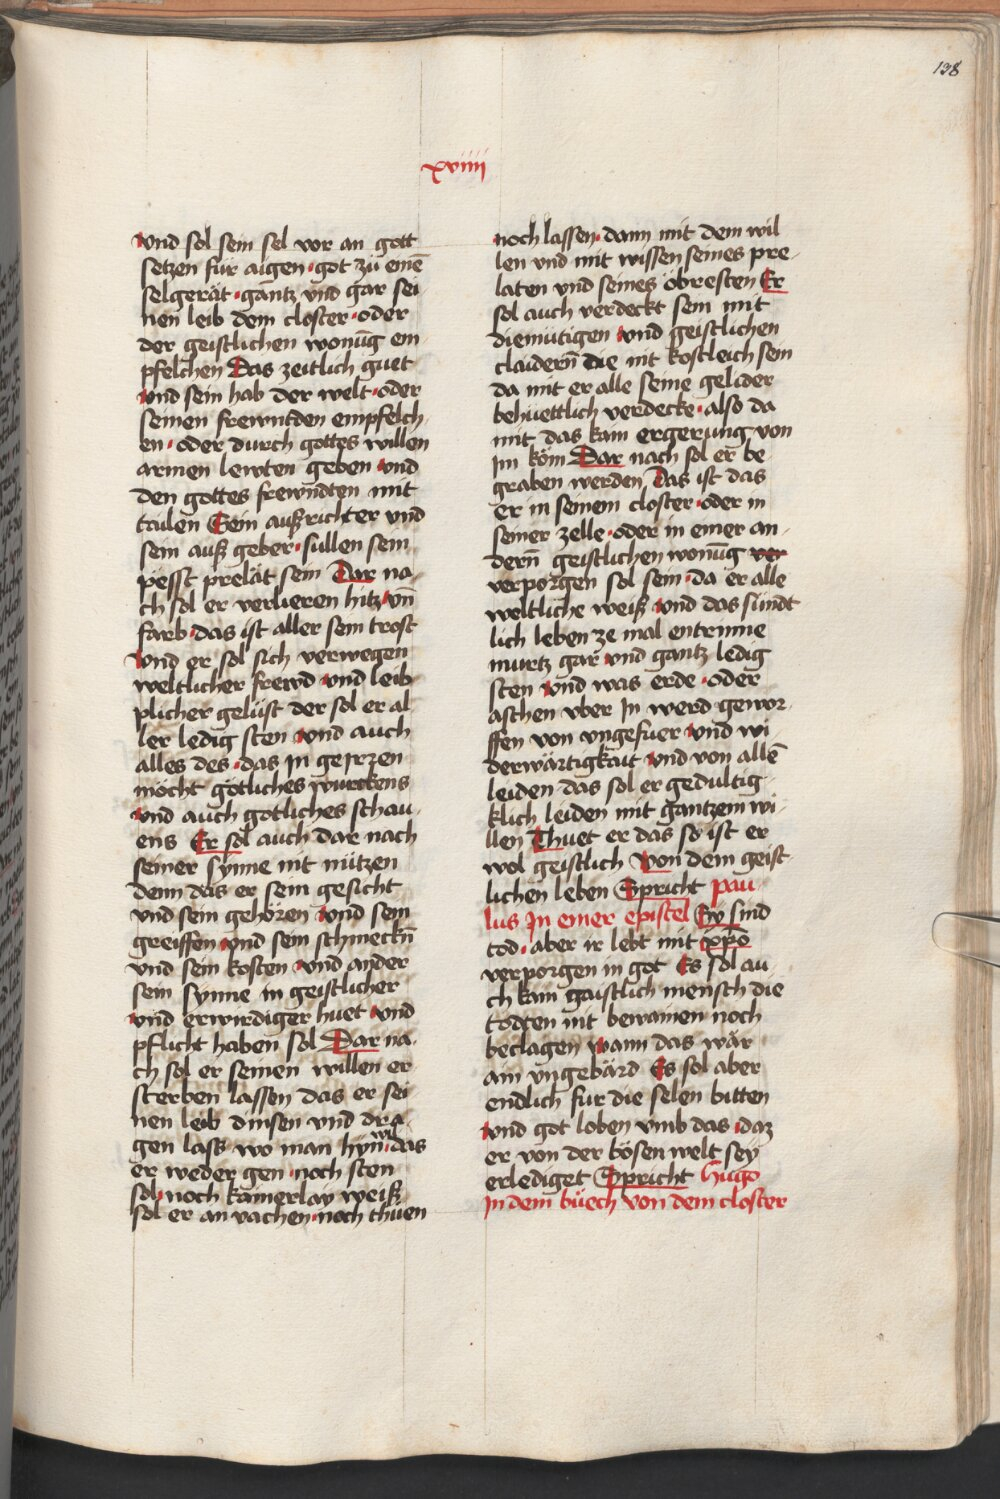 138
xviiii
vnd sol sein sel vor an gott
setzen für aigen · got zü einē
selgerät · gantz vnd gar sei
nen leib dem closter · oder
der geistlichen wonūg em
pfelchen Das zeitlich guet
vnd sein hab der welt · oder
seinen frewntden empfelch
en · oder durch gottes willen
armen lewten geben · vnd
den gottes frewndten mit
tailen Sein außrichter vnd
sein auß geber · sullen sein
pesst prelät sein Dar na
ch sol er verlieren hitz · vn̄
farb · das ist aller sein trost
Vnd er sol sich verwegen
weltlicher frewd · vnd leib
plicher gelüst der sol er al
ler ledig sten · vnd auch
alles des · das in geirren
möcht götliches wurckens
· vnd auch götliches schau
ens Er sol auch dar nach
seiner synne nit nützen
denn das er sein gesicht
vnd sein gehören · vnd sein
greiffen · vnd sein schmeckn̄
vnd sein kosten · vnd ander
sein synne in geistlicher
vnd erwirdiger huet · vnd
pflicht haben sol Dar na
ch sol er seinen willen er
sterben lassen das er sei
nen leib dinsen vnd dra
gen lass wo man hyn wil · das
er weder gen · noch sten
sol · noch kainerlay weiß
sol er an vachen · noch thuen
noch lassen · dann mit dem wil
len vnd mit wissen seines pre
laten vnd seines öbresten Er
sol auch verdeckt sein mit
diemütigen · vnd geistlichen
claidern̄ die nit kostleich sein
da mit er alle seine gelider
behuettlich verdecke · also da
mit das kain ergerung von
im köm Dar nach sol er be
graben werden Das ist das
er in seinem closter · oder in
seiner zelle · oder in einer an
dern̄ geistlichen wonūg ver
verporgen sol sein · da er alle
weltliche weiß · vnd das sündt
lich leben ze mal entrinne
murtz gar · vnd gantz ledig
sten · vnd was erde · oder
aschen vber in werd gewor
ffen von vngefuer · vnd wi
derwärtigkait · vnd von allē
leiden das sol er gedultig
klich leiden mit gantzem wi
llen Thuet er das so ist er
wol geistlich Von dem geist
lichen leben Spricht pau
lus In einer epistel Ey sind
tod · aber ir lebt mit xp̄o
verporgen in got Es sol au
ch kain gaistlich mensch die
todten nit bewainen noch
beclagen wann das wär
ain vngebärd Es sol aber
endlich für die selen bitten
· vnd got loben vmb das · daz
er von der bösen welt sey
erlediget Spricht Hugo
In dem büech von dem closter